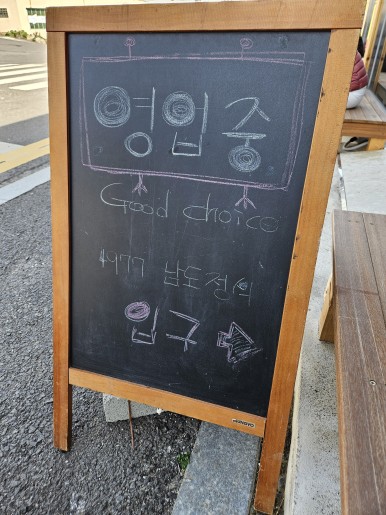 영업중
Good choice
4977 남도전식
입구